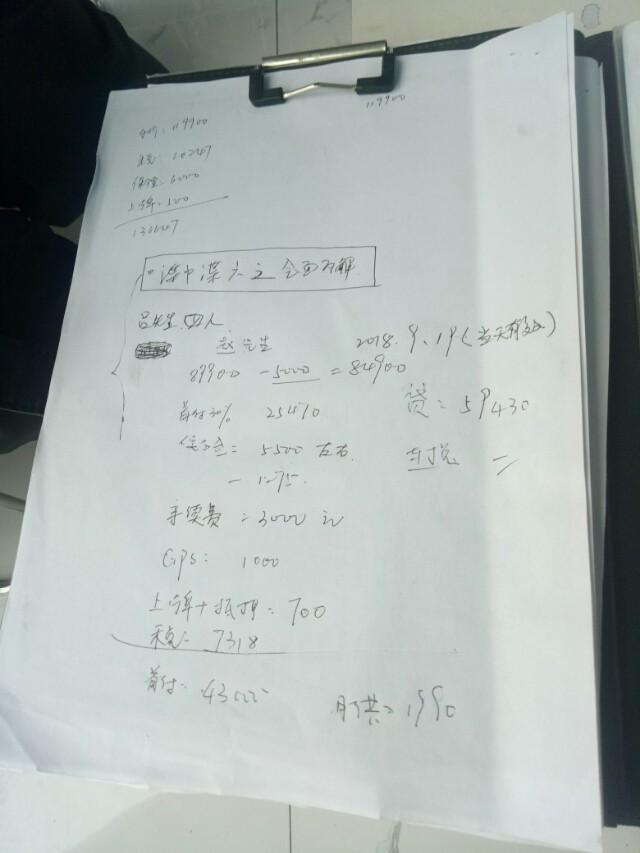 119900
119900
税: 10247
保险: 6000
上牌: 500
136647
谋中谋 全面
吕先生
赵先生 2018.9.19(当天有效)
89900 - 5000 = 84900
首付30% 25470 贷: 59430
保险 = 5500左右
手续费 = 3000元
GPS: 1000
上牌+抵押 = 700
税: 7318
首付: 43000 月供: 1990